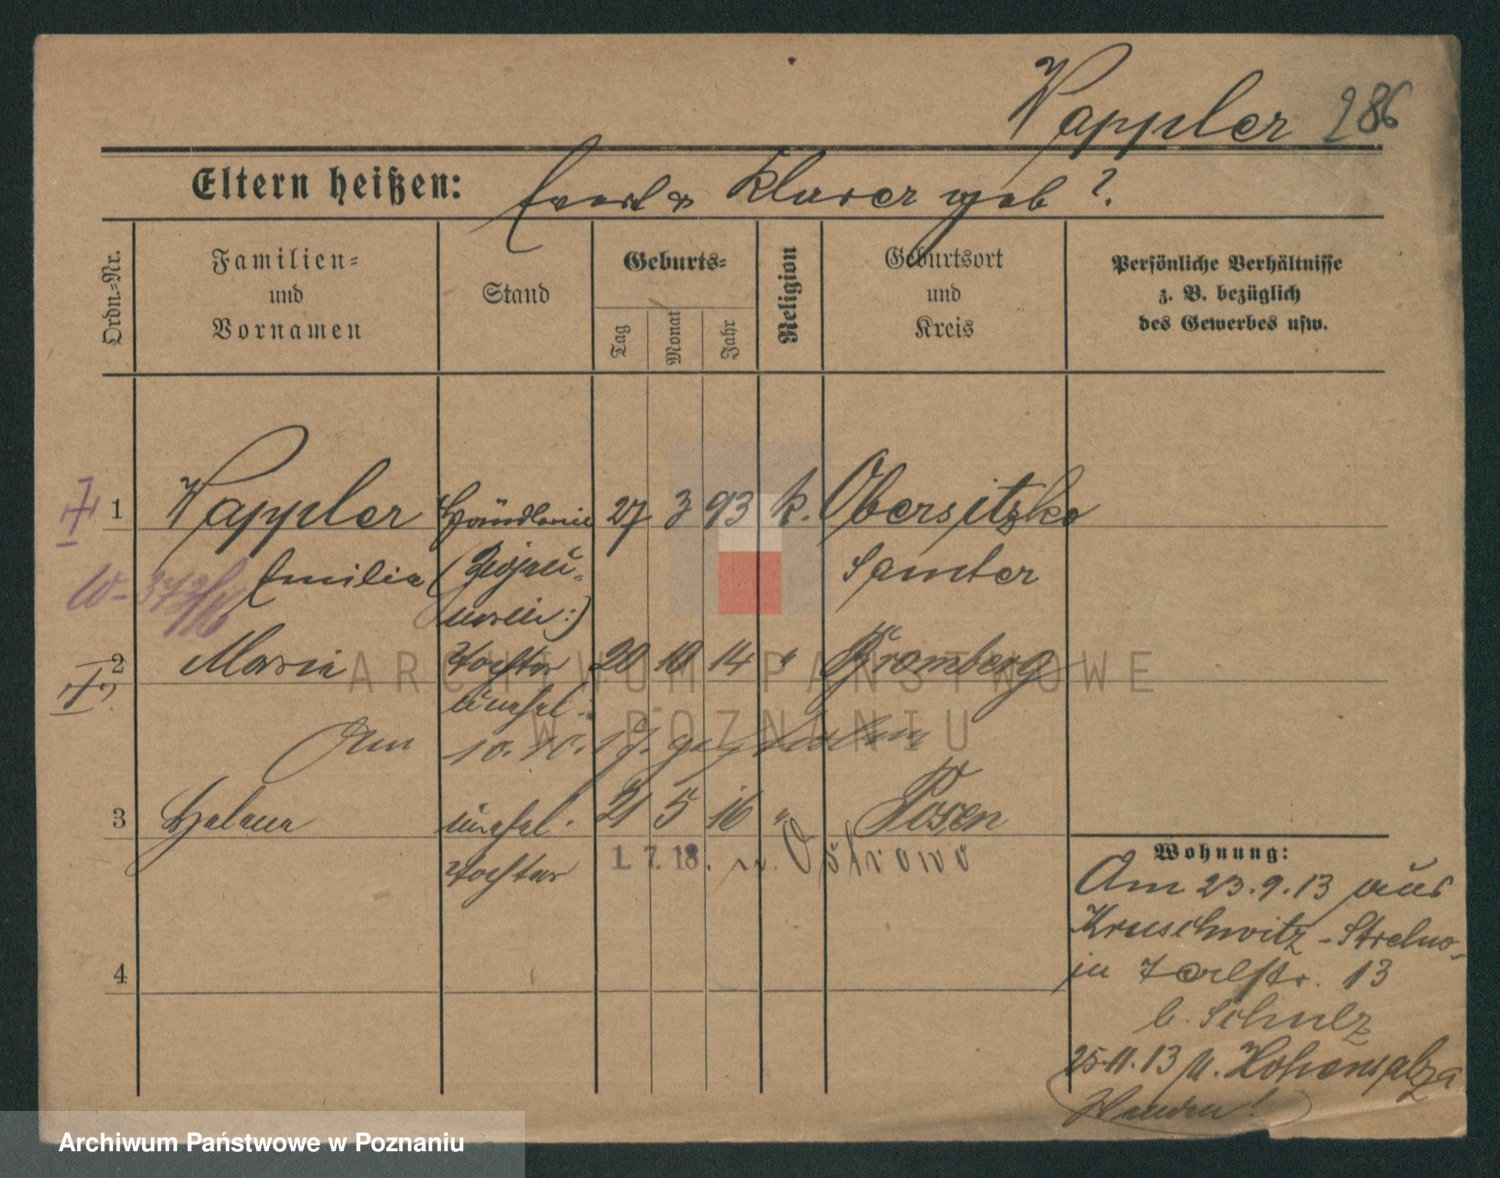 Wappler 286
Eltern heißen: Karl & Klara geb ?.
Ordn.-Nr.
Familien-
und
Vornamen
Stand
Geburts-
Tag
Monat
Jahr
Religion
Geburtsort
und
Kreis
Persönliche Verhältnisse
z. B. bezüglich
des Gewerbes usw.
1 Wappler Händlerin 27 3 93 k. Obersitzko
Emilia Samter
2 Maria Tochter 20 10 14 " Bromberg
unehel.
Am 10. 10. 17. gestorben
3 Helena unehel. 21 5 16 " Posen
Tochter 1. 7. 18. n. Ostrowo
4
Wohnung:
Am 23.9.13 aus
Kruschwitz - Strelno
in 13
b. Schulz
25.11.13 n. Hohensalza
Wenden!
ARCHIWUM PAŃSTWOWE
W POZNANIU
Archiwum Państwowe w Poznaniu